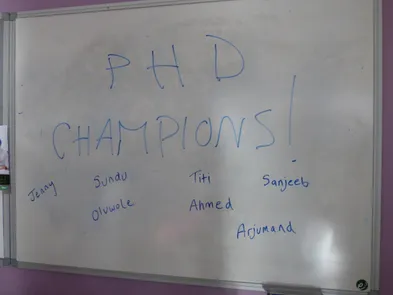 PHD
CHAMPIONS!
Jenny Sundu Titi Sanjeeb
Oluwole Ahmed
Arjumand